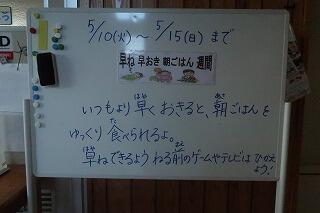 5/10(火)～5/15(日)まで
早ね 早おき 朝ごはん 週間
いつもより早くおきると、朝ごはんを
ゆっくり食べられるよ。
早ねできるよう ねる前のゲームやテレビは ひかえ
よう!